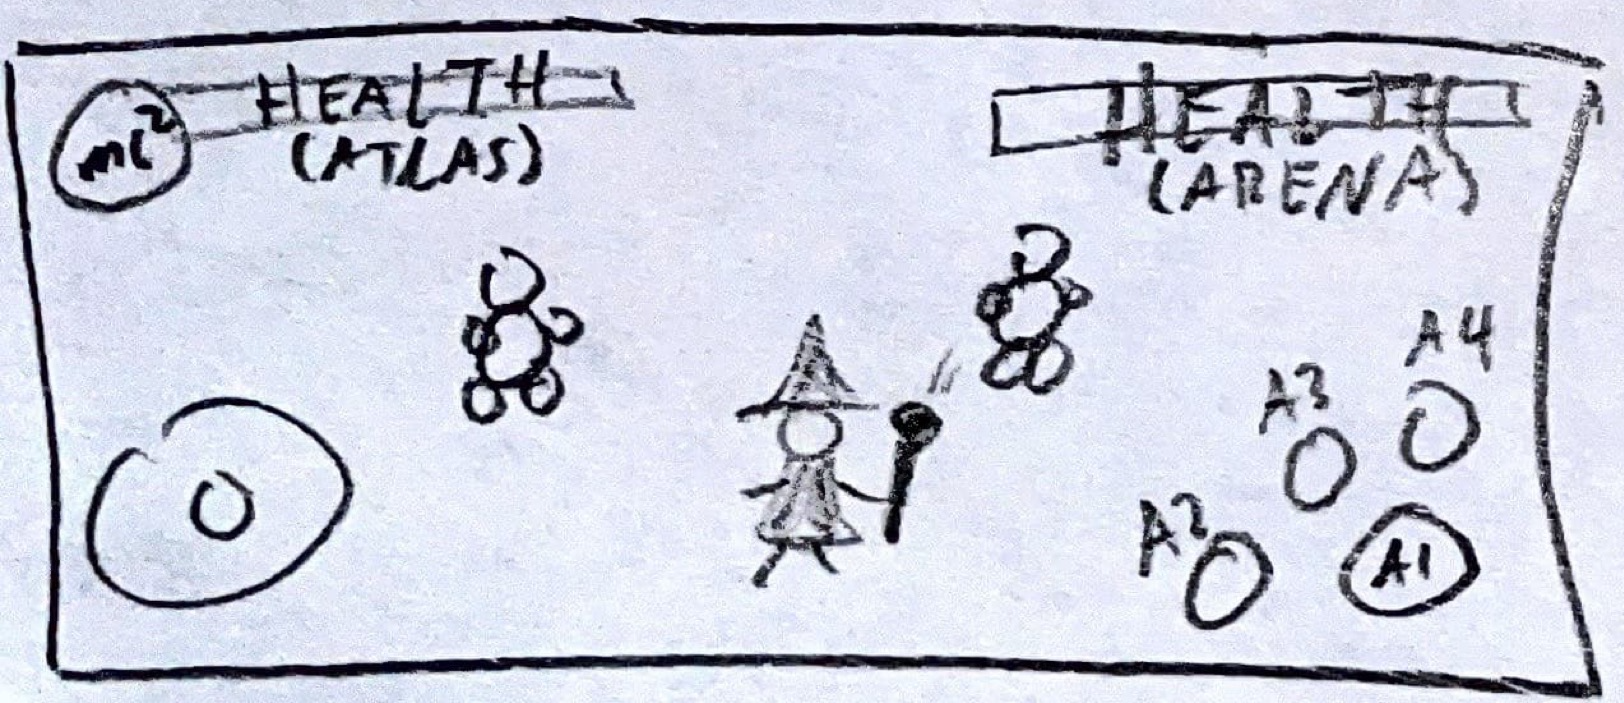 MC²
HEALTH
(ATLAS)
HEALTH
(ARENA)
A4
A3
A2
A1